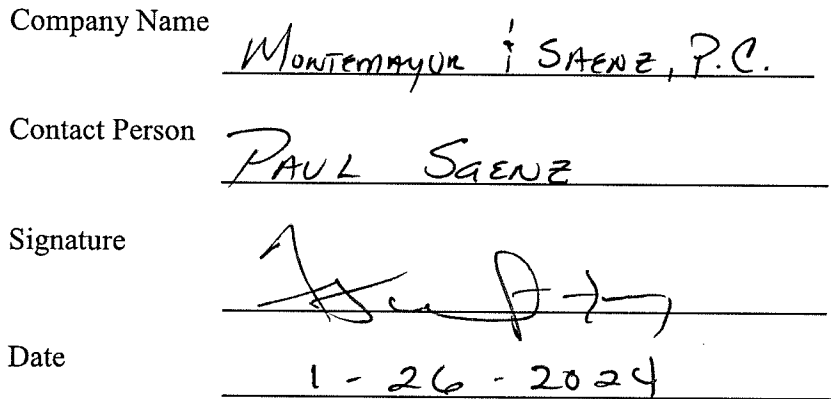 Company Name MONTEMAYUR & SAENZ, P.C.
Contact Person PAUL SAENZ
Signature
Date 1-26-2024